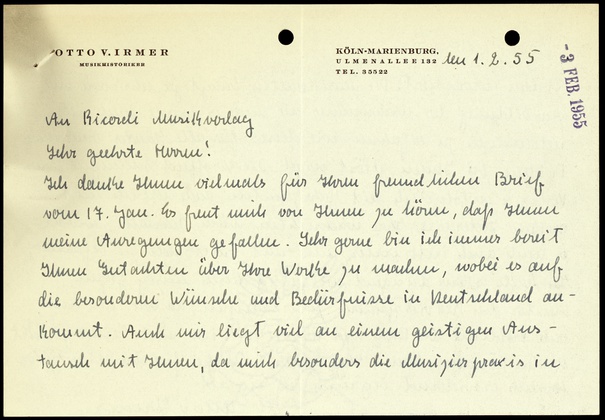 OTTO V. IRMER
MUSIKHISTORIKER
KÖLN-MARIENBURG,
ULMENALLEE 132
TEL. 35522
den 1.2.55
- 3 FEB. 1955
An Ricordi Musikverlag
Sehr geehrte Herren!
Ich danke Ihnen vielmals für Ihren freundlichen Brief
vom 17. Jan. Es freut mich von Ihnen zu hören, daß Ihnen
meine Anregungen gefallen. Sehr gerne bin ich immer bereit
Ihnen Gutachten über Ihre Werke zu machen, wobei es auf
die besonderen Wünsche und Bedürfnisse in Deutschland an-
kommt. Auch mir liegt viel an einem geistigen Aus-
tausch mit Ihnen, da mich besonders die Musizierpraxis in